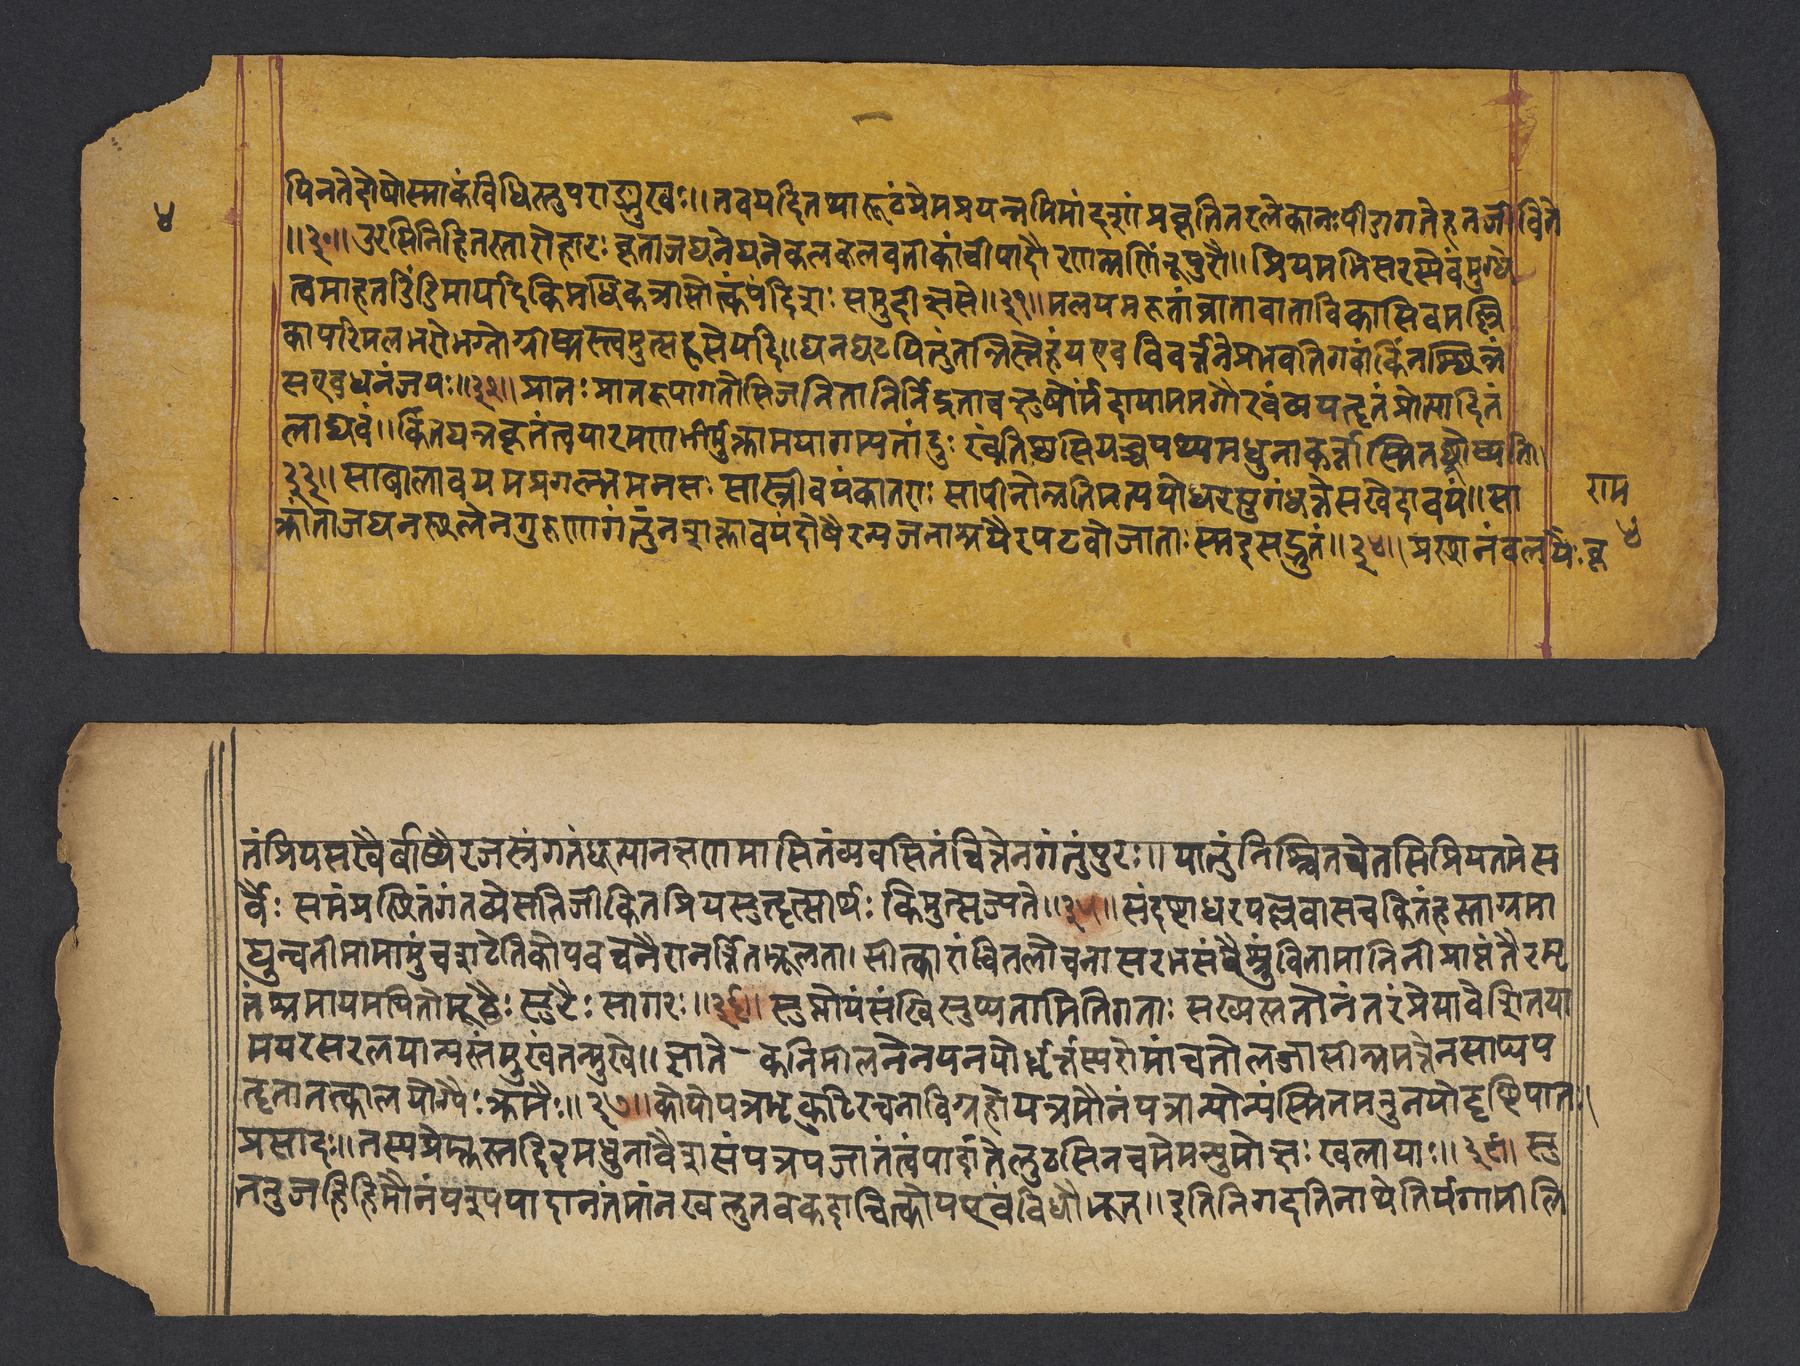 ४
पिनतेदोषोस्माकंविधिस्तुपराङ्मुखः॥तवयदितथारूढंप्रेमप्रपन्नमिमांदशांप्रकृतितरलेकानःपीडागतेहतजीविते
॥३०॥उरसिनिहितस्तारोहारः कृताजघनेघनेकलकलवतीकांचीपादौरणन्मणिनूपुरौ॥प्रियमभिसरस्येवंमुग्धे
त्वमाहतडिंडिमायदिकिमधिकत्रासोत्कंपंदिशः समुदीक्षसे॥३१॥मलयमरुतांव्रातावाताविकासितमल्लि
कापरिमलभरोभग्नोग्रीष्मस्त्वमुत्सहसेयदि॥घनघटयितुंतन्निस्नेहंयएवविवर्त्तनेप्रभवतिगवांकिंनश्छिन्नं
सएवधनंजयः॥३२॥प्रातः प्रातरुपागतोसिजनितानिर्निद्रताचक्षुषोर्मंदायामममगौरवंव्यपहृतंप्रोत्पादितं
लाघवं॥किंतद्यन्नकृतंत्वयारमणभीर्मुक्तामयागम्यतांदुःखंतिष्ठसियच्चपथ्यमधुनाकर्त्तास्मितच्छ्रोष्यसि॥
३३॥साबालावयमप्रगल्भमनसः सास्त्रीवयंकातराः सापीनोन्नतिमत्पयोधरयुगंधत्तेसखेदावयं॥सा
राम
क्रांताजघनस्थलेनगुरुणागंतुंनशक्तावयंदोषैरन्यजनाश्रयैरपटवोजाताःस्मइत्यद्भुतं॥३४॥प्रस्थानंवलयैःकृ
४
तंप्रियसखैर्बाष्पैरजस्रंगतंधृत्यानक्षणमासितंव्यवसितंचित्तेनगंतुंपुरः॥यातुंनिश्चितचेतसिप्रियतमेस
र्वैः समंप्रस्थितंगंतव्येसतिजीवितप्रियसुहृत्सार्थः किमुत्सृज्यते॥३५॥संदष्टाधरपल्लवासचकितंहस्ताग्रमा
धुन्वतीमामामुंचशठेतिकोपवचनैरानर्त्तितभ्रूलता।सीत्कारांचितलोचनासरभसंयैश्चुंबितामानिनीप्राप्तंतैरमृ
तंश्रमायमथितोमूढैः सुरैः सागरः॥३६॥सुप्तोयंसखिसुप्यतामितिगताः सख्यस्ततोनंतरंप्रेमावेशितया
मयासरलयान्यस्तंमुखंतन्मुखे॥ज्ञातेलीकनिमीलनेनयनयोर्धूर्त्तस्यरोमांचतोलज्जासीन्ममतेनसाप्यप
हृतातत्कालयोग्यैः क्रमैः॥३७॥कोपोयत्रभृकुटिरचनाविग्रहोयत्रमौनंयत्रान्योन्यंस्मितमनुनयोदृष्टिपातः
प्रसादः॥तस्यप्रेम्णस्तदिदमधुनावैशसंपश्यजातंत्वंपादांतेलुठसिनचमेमन्युमोक्षः खलायाः॥३८॥सु
तनुजहिहिमौनंपश्यपादानतंमांनखलुतवकदाचित्कोपएवंविधोभूत्॥इतिनिगदतिनाथेतिर्यगामीलि